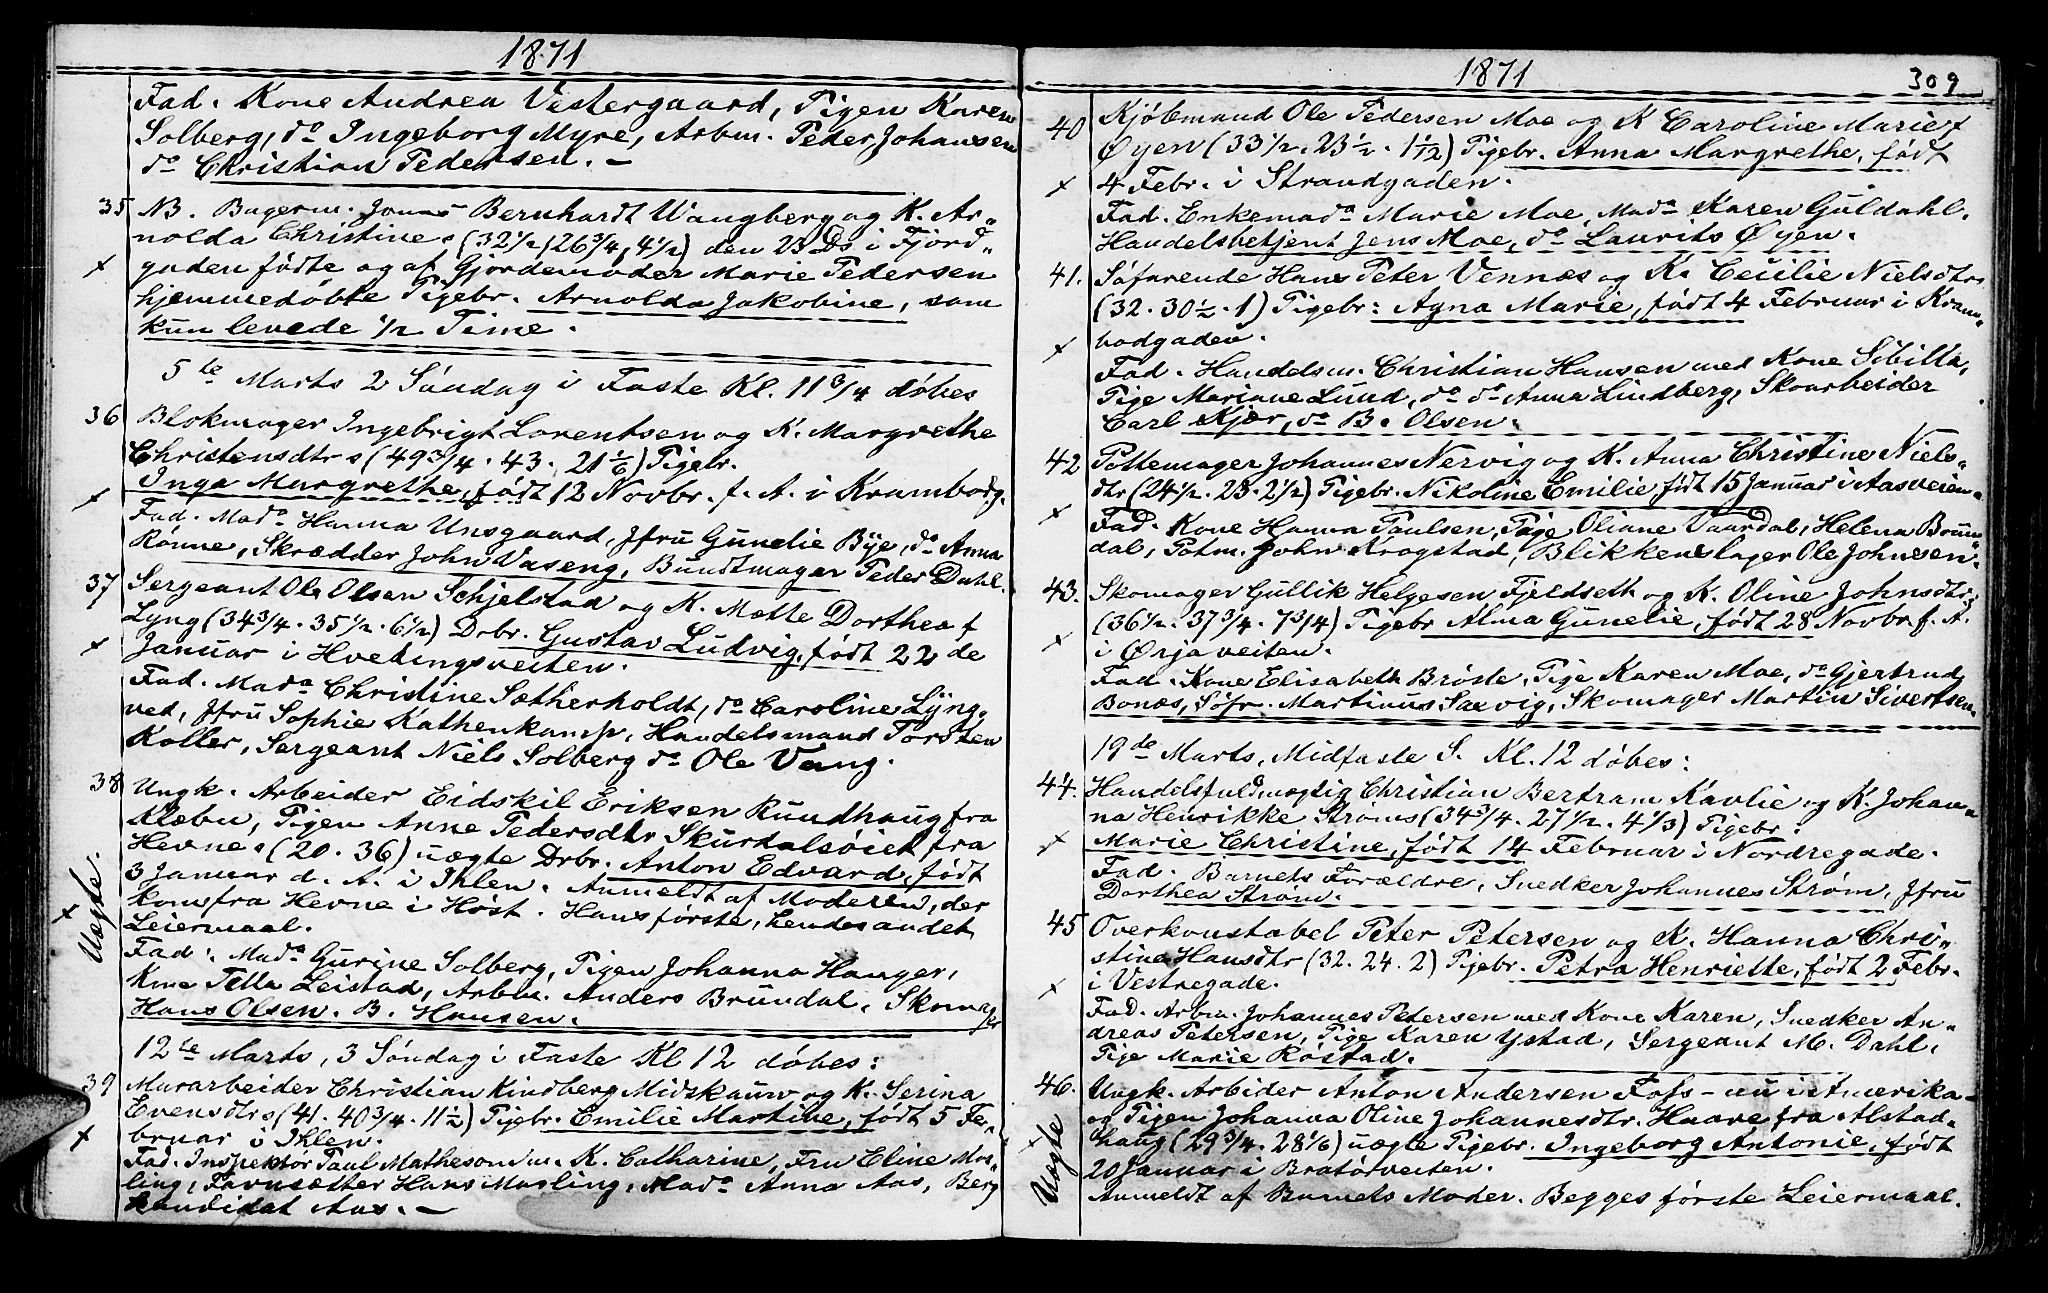 1871
Fad. Kone Andrea Vestergaard, Pigen Karen
Solberg, do Ingeborg Myre, Arbm. Peder Johansen
do Christian Pedersen. —
35 NB. Bagerm. Jonas Bernhardt Wangberg og K. Ar-
nolda Christines (32 1/2, 26 3/4, 4 1/2) den 23 Ds i Fjord-
gaden fødte og af Gjordemoder Marie Pedersen
x
hjemmedøbte Pigebr. Arnolda Jakobine, som
kun levede 1/2 Time.
5te Marts 2 Søndag i Faste Kl. 11 3/4 døbes
36 Blokmager Ingebrigt Lorentsen og K. Margrethe
Christensdtrs (49 3/4. 43. 21 1/6) Pigebr.
Inga Margrethe, født 12 Novbr. f. A. i Krambodg.
x
Fad. Mada Hanna Unsgaard, Jfru Gunelie Bye, do Anna
Rønne, Skrædder John Vaseng, Bundtmager Peder Dahl.
37 Sergeant Ole Olsen Schjelstad og K. Mette Dorthea f
Lyng (34 3/4. 35 1/2. 6 1/2) Drbr. Gustav Ludvig, født 22de
x
Januar i Hvedingsveiten.
Fad. Mada Christine Sætherholdt, do Caroline Lyng-
vet, Jfru Sophie Kathenkamp, Handelsmand Torsten
Koller, Sergeant Niels Solberg do Ole Vang.
38 Ungk. Arbeider Eidskil Eriksen Rundhaug fra
Klæbu, Pigen Anne Pedersdtr Skurdalsøiet fra
Hevnes (20. 36) uægte Drbr. Anton Edvard, født
3 Januar d. A. i Ihlen. Anmeldt af Moderen, der
x Uægte.
kom fra Hevne i Høst. Hans første, hendes andet
Leiermaal.
Fad: Mada Gurine Solberg, Pigen Johanna Hanger,
Kone Tella Leistad, Arbm. Anders Brundal, Skomager
Hans Olsen. B. Hansen.
12te Marts, 3 Søndag i Faste Kl 12 døbes:
39 Murarbeider Christian Kindberg Midskaun og K. Serina
Evensdtrs (41. 40 3/4. 11 1/2) Pigebr. Emilie Martine, født 5 Fe-
x
bruar i Ihlen.
Fad. Inspektør Paul Matheson m. K. Catharine, Fru Eline Mos-
ling, Farvsætter Hans Mosling, Mada Anna Aas, Berg
kandidat Aas. —
1871
309
40 Kjøbmand Ole Pedersen Moe og K Caroline Marie f
Øyen (33 1/2. 23 1/2. 1 1/12) Pigebr. Anna Margrethe, født
x
4 Febr. i Strandgaden.
Fad. Enkemada Marie Moe, Mada Karen Guldahl.
Handelsbetjent Jens Moe, do Laurits Øyen.
41. Søfarende Hans Peter Vennæs og K. Cecilie Nielsdtrs
(32. 30 1/2. 1) Pigebr: Agna Marie, født 4 Februar i Kram-
x
bodgaden.
Fad. Handelsm. Christian Hansen med Kone Sibilla,
Pige Mariane Lund, do do Anna Lindberg, Skoarbeider
Carl Kjær, do B. Olsen.
42 Pottemager Johannes Nervig og K. Anna Christine Niels-
dtr (24 1/2. 23. 2 1/2) Pigebr. Nikoline Emilie, født 15 Januar i Aasveien.
x
Fad. Kone Hanna Paulsen, Pige Oliane Vaardal, Helena Brun-
dal, Potm. John Krogstad, Blikkenslager Ole Johnsen.
43. Skomager Gullik Helgesen Fjeldseth og K. Oline Johnsdtrs
(36 1/2. 37 3/4. 7 3/4) Pigebr Alma Gunelie, født 28 Novbr f. A.
x
i Ørjaveiten.
Fad. Kone Elisabeth Brøste, Pige Karen Moe, do Gjertrud
Bonæs, Søfr. Martinus Saxvig, Skomager Martin Sivertsen.
19de Marts, Midfaste S. Kl. 12 døbes:
44. Handelsfuldmægtig Christian Bertram Kavlie og K. Johan-
na Henrikke Strøms (34 3/4. 27 1/2. 4 1/3) Pigebr:
x
Marie Christine, født 14 Februar i Nordregade.
Fad. Barnets Forældre, Snedker Johannes Strøm, Jfru
Dorthea Strøm.
45 Overkonstabel Peter Petersen og K. Hanna Chri-
stina Hansdtr (32. 24. 2) Pigebr. Petra Henriette, født 2 Febr.
x
i Vestregade.
Fad. Arbm. Johannes Petersen med Kone Karen, Snedker An-
dreas Petersen, Pige Karen Ystad, Sergeant M. Dahl,
Pige Marie Røstad.
46. Ungk. Arbider Anton Andersen Foss - nu i Amerika -
og Pigen Johanna Oline Johannesdtr. Haave fra Alstad-
x Uægte
haug (29 3/4. 28 1/6) uægte Pigebr. Ingeborg Antonie, født
20 Januar i Bratørveiten.
Anmeldt af Barnets Moder. Begges første Leiermaal.